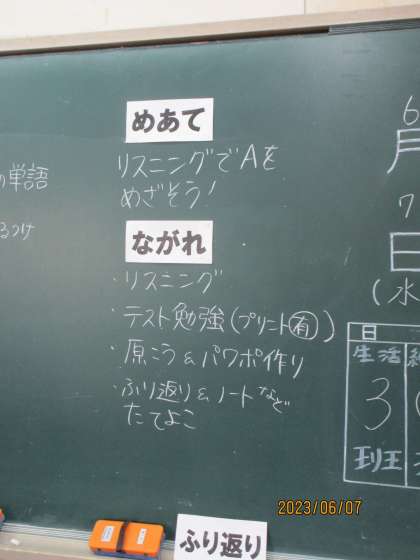 めあて
リスニングでAを
めざそう!
ながれ
・リスニング
・テスト勉強(プリント有)
・原こう&パワポ作り
・ふり返り&ノートなど
たてよこ
ふり返り
の単語
るつけ
6
月
7
日
(水
日
生活
3
班
2023/06/07